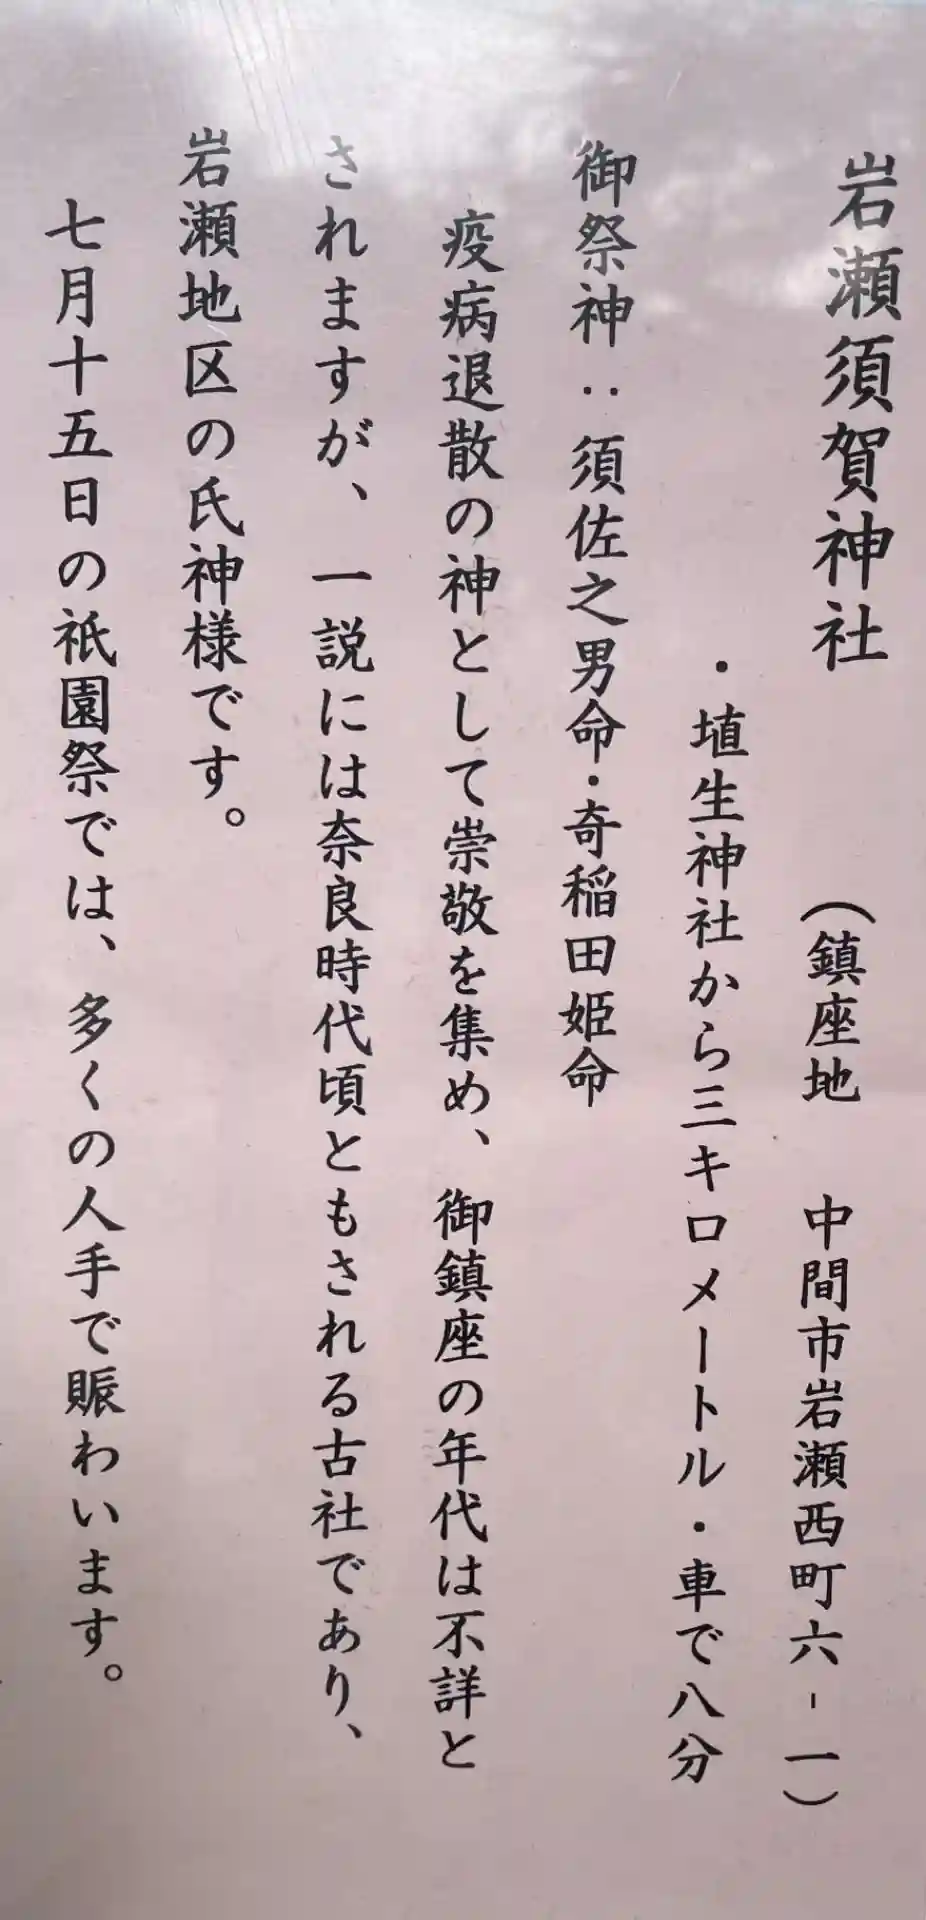 岩瀬須賀神社　　（鎮座地　中間市岩瀬西町六-一）
・埴生神社から三キロメートル・車で八分
御祭神：須佐之男命・奇稲田姫命
疫病退散の神として崇敬を集め、御鎮座の年代は不詳と
されますが、一説には奈良時代頃ともされる古社であり、
岩瀬地区の氏神様です。
七月十五日の祇園祭では、多くの人手で賑わいます。